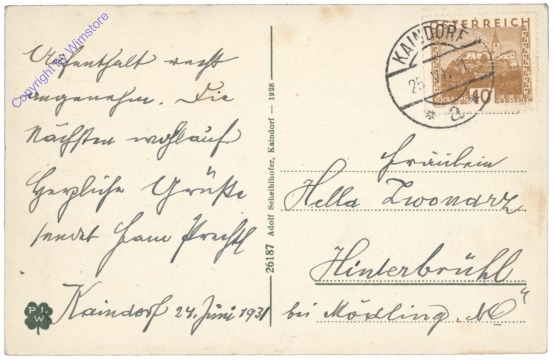 Aufenthalt recht
angenehm. Die
Nächsten wohlauf
Herzliche Grüße
sendet Fam Prechtl
Kaindorf 24. Juni 1931
Copyright by Wimstore
P.
W
26187 Adolf Scheiblhofer, Kaindorf — 1928
ÖSTERREICH
40
GROSCHEN
KAINDORF
25
* a *
Fräulein
Hella Zwonarz
Hinterbrühl
bei Mödling, NÖ